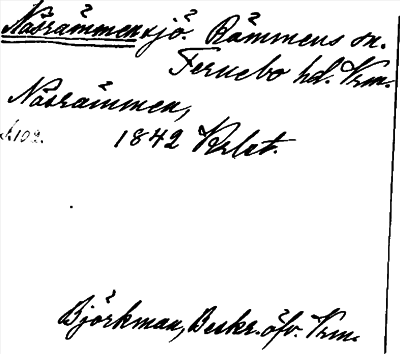 Näsrämmen sjö. Rämmens sn.
Fernebo hd. Vrm.
Näsrämmen,
s. 102. 1842 Krbt.
Björkman, Beskr. öfv. Vrm.